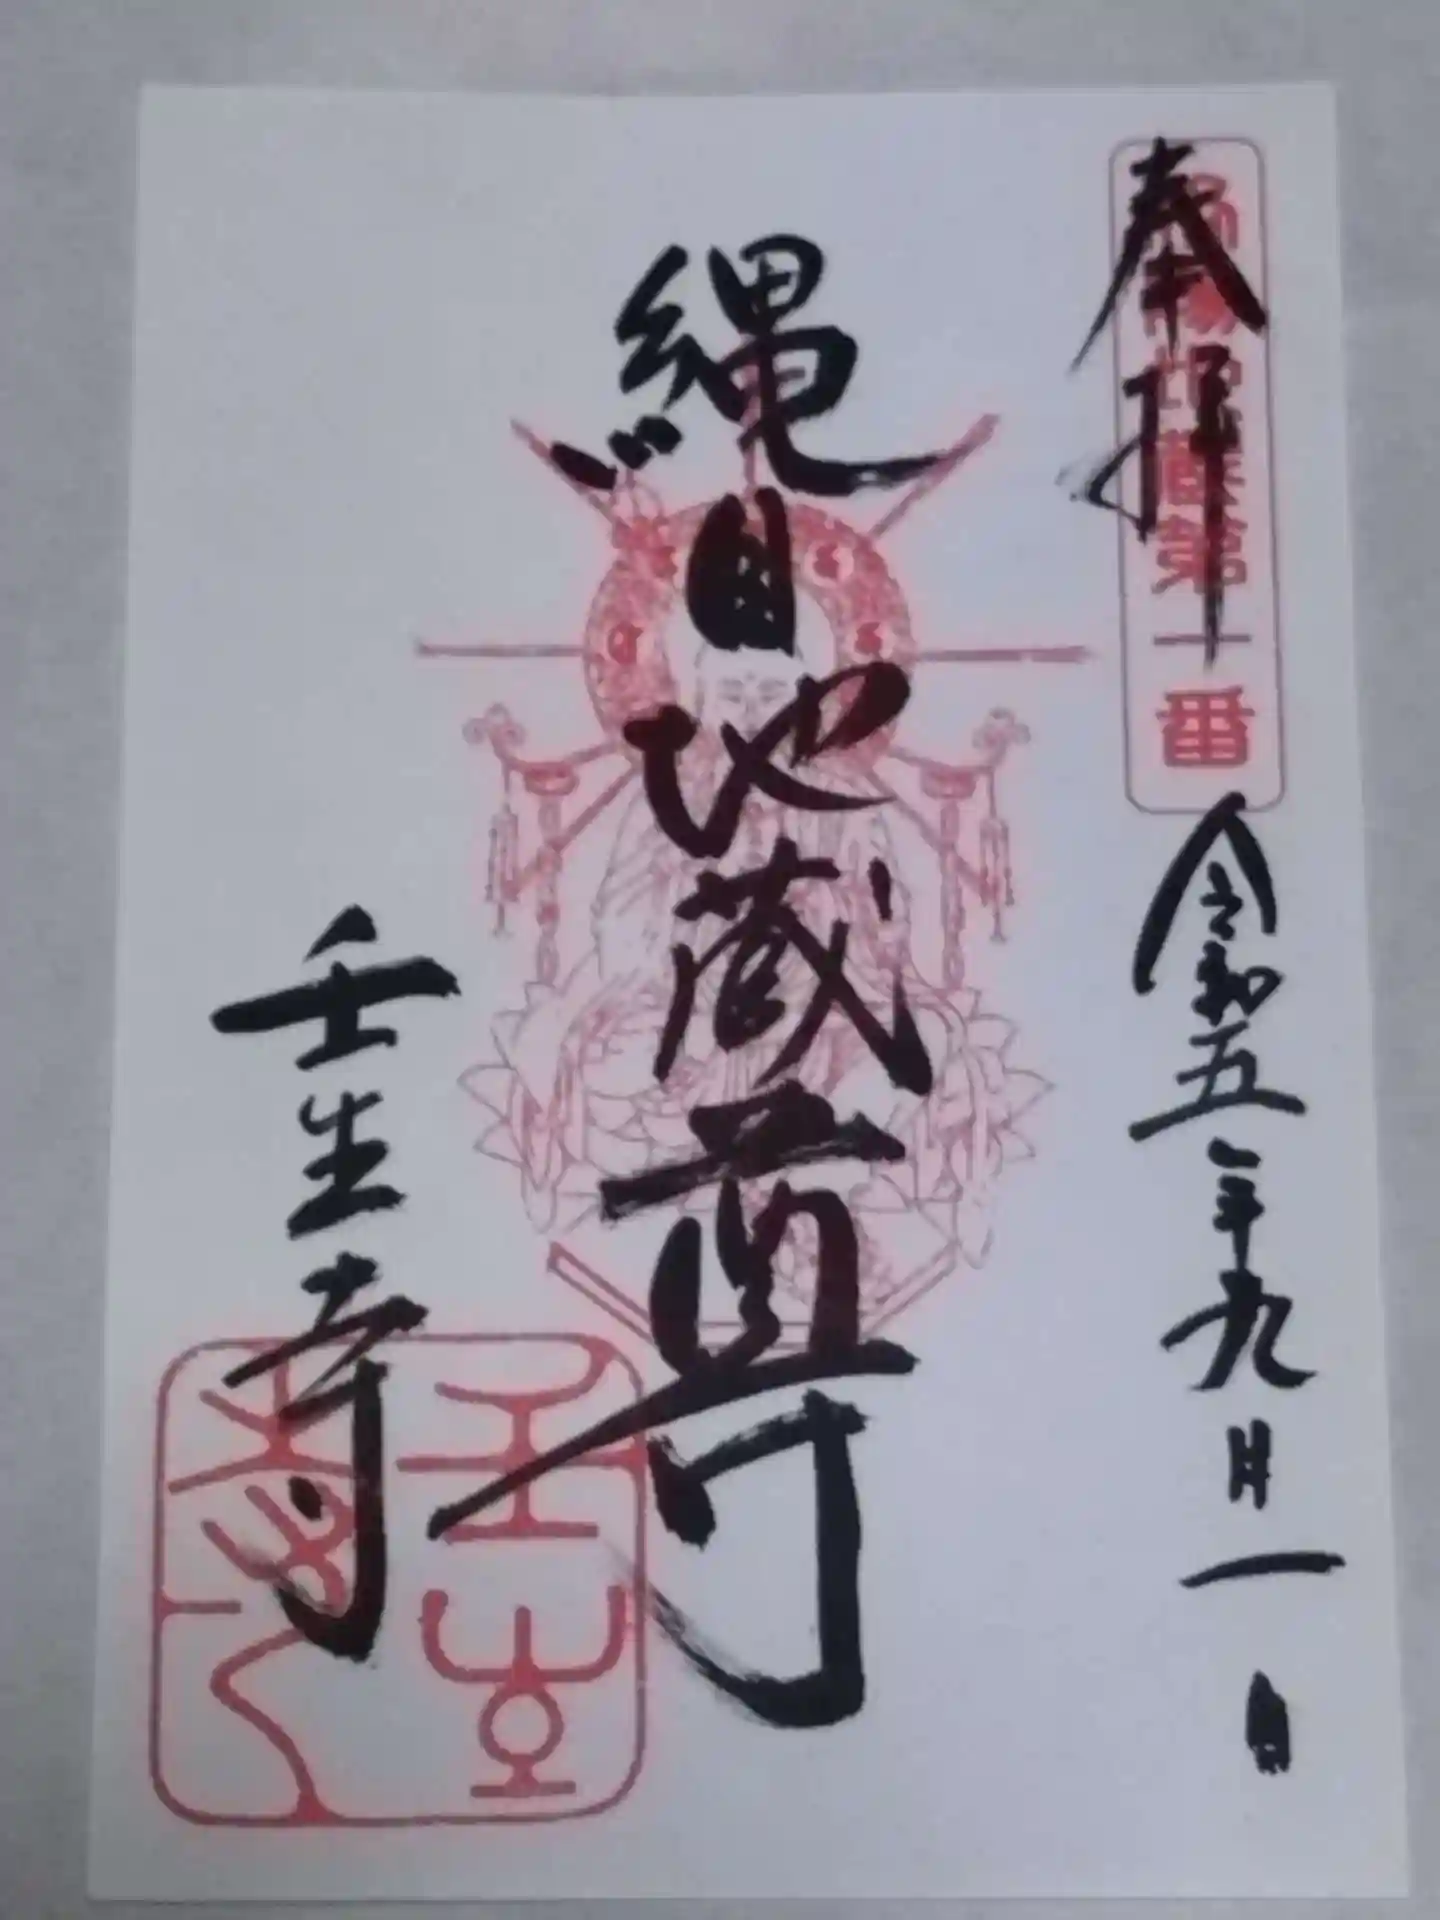 奉拝
洛陽地蔵第一番
令和五年九月一日
縄目地蔵尊
壬生寺